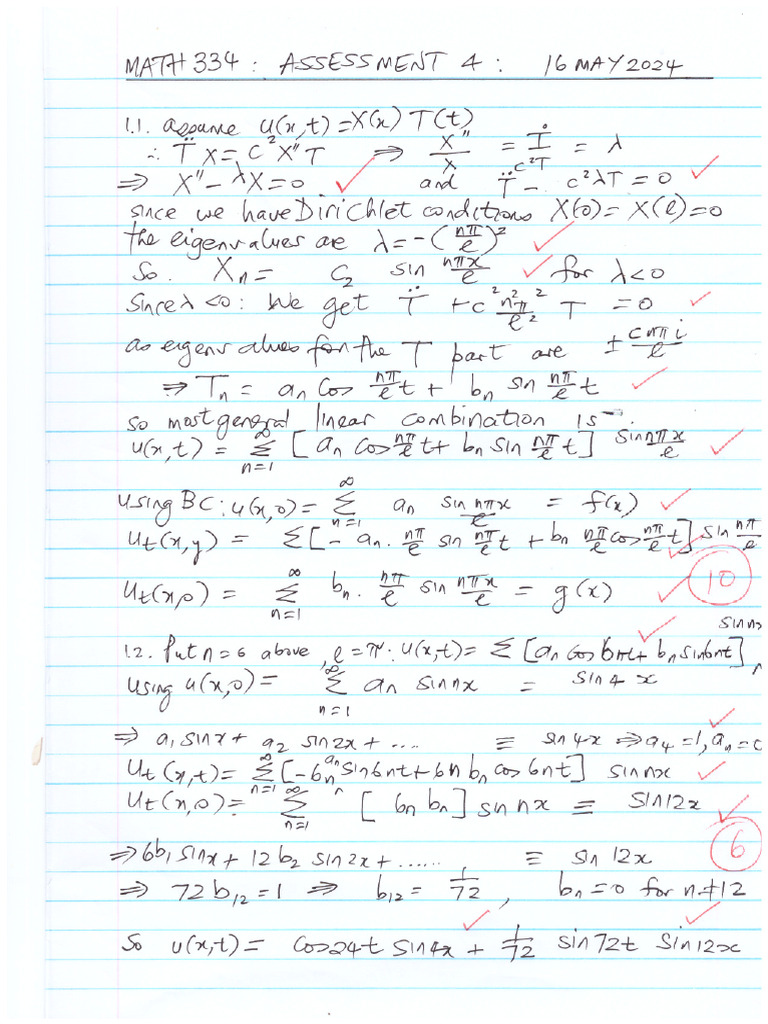 MATH 334 : ASSESSMENT 4 : 16 MAY 2024
1.1. Assume u(x,t) = X(x) T(t)
∴ T̈ X = C² X'' T ⇒ X''/X = T̈/c²T = λ
⇒ X'' - λX = 0 and T̈ - c²λT = 0
since we have Dirichlet conditions X(0) = X(ℓ) = 0
the eigenvalues are λ = -(nπ/ℓ)²
So. Xn = C₂ sin nπx/ℓ for λ < 0
Since λ < 0 : We get T̈ + c² n²π²/ℓ² T = 0
as eigenvalues for the T part are ± cnπi/ℓ
⇒ Tn = an Cos nπ/ℓ t + bn sin nπ/ℓ t
so most general linear combination is
u(x,t) = ∞ Σ n=1 [ an cos nπ/ℓ t + bn sin nπ/ℓ t ] sin nπx/ℓ
using BC : u(x,0) = ∞ Σ n=1 an sin nπx/ℓ = f(x)
Ut(x,y) = Σ [ - an. nπ/ℓ sin nπ/ℓ t + bn nπ/ℓ cos nπ/ℓ t ] sin nπ/ℓ
10
Ut(x,0) = ∞ Σ n=1 bn. nπ/ℓ sin nπx/ℓ = g(x)
1.2. Put n=6 above, ℓ = π : u(x,t) = Σ [an cos 6nt + bn sin6nt] sin nx
Using u(x,0) = Σ n=1 an sin nx = sin 4 x
⇒ a₁ sinx + a₂ sin 2x + .... ≡ sin 4x ⇒ a₄ = 1, an = 0
Ut(x,t) = ∞ Σ n=1 [-6n an sin6nt + 6n bn cos 6nt] sin nx
Ut(x,0) = ∞ Σ n=1 [ 6n bn ] sin nx ≡ sin12x
6
⇒ 6b₁ sinx + 12 b₂ sin 2x + ...... ≡ sin 12x
⇒ 72 b₁₂ = 1 ⇒ b₁₂ = 1/72 , bn = 0 for n ≠ 12
So u(x,t) = cos24t sin4x + 1/72 sin 72t sin12x